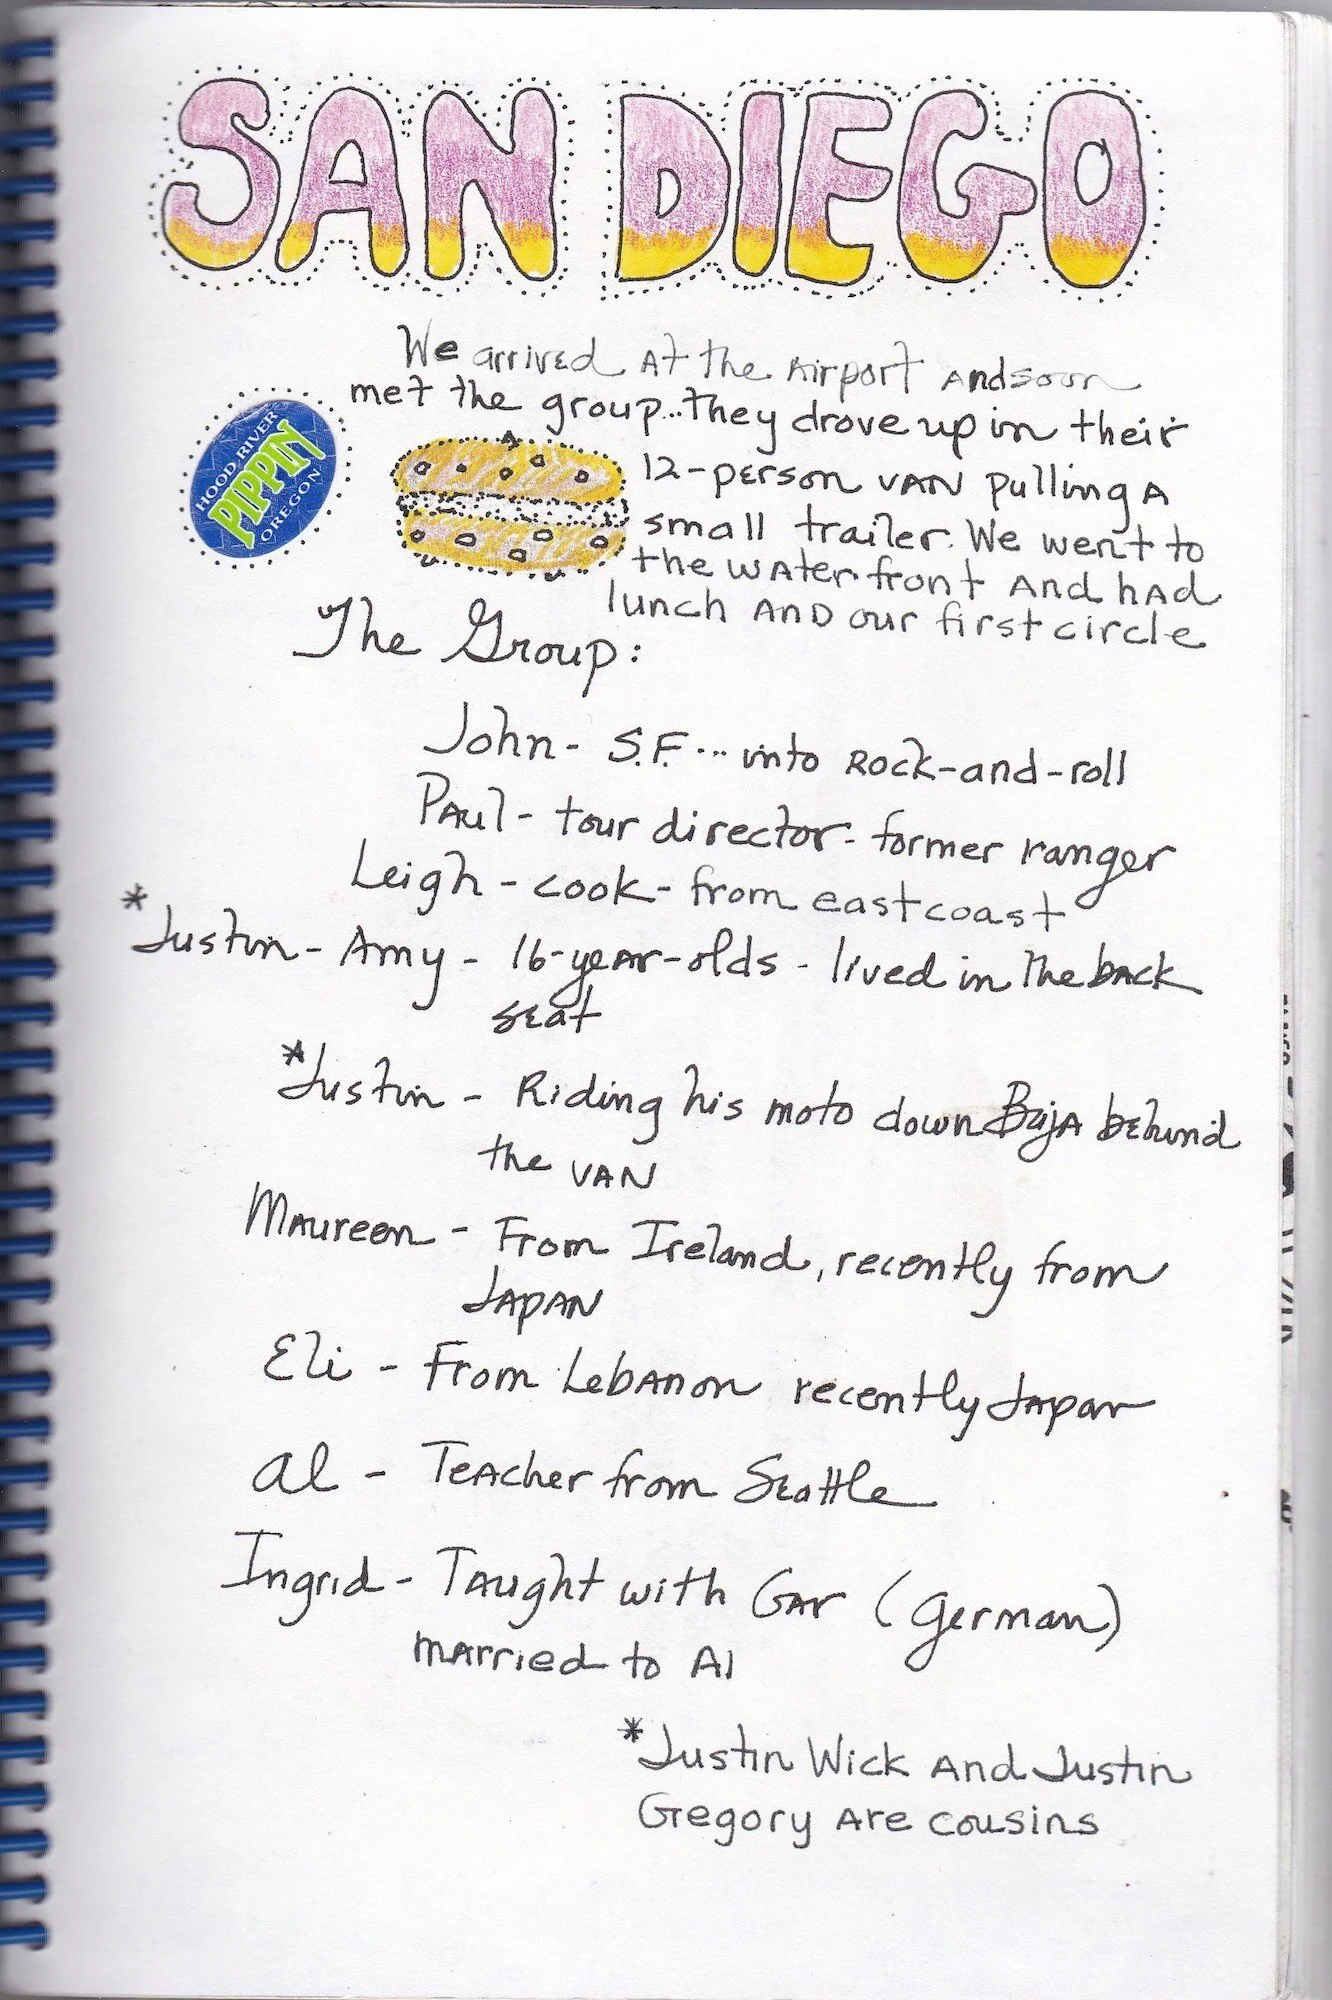 SAN DIEGO
We arrived At the Airport And soon
met the group...they drove up in their
12-person VAN pulling A
small trailer. We went to
the waterfront And had
lunch AND our first circle
HOOD RIVER
PIPPIN
OREGON
The Group:
John - S.F. ... into Rock-and-roll
Paul - tour director - former ranger
Leigh - cook - from east coast
*Justin - Amy - 16-year-olds - lived in the back
seat
*Justin - Riding his moto down Baja behind
the VAN
Maureen - From Ireland, recently from
JAPAN
Eli - From Lebanon recently Japan
Al - Teacher from Seattle
Ingrid - Taught with Gar (German)
married to Al
*Justin Wick And Justin
Gregory Are cousins